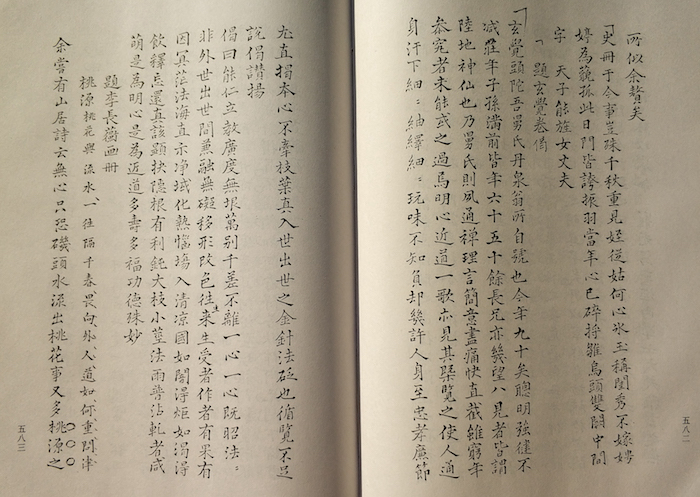 所似余贅矣
史冊于今事豈殊千秋重見姪從姑何心冰玉稱閨秀不嫁娉
婷為藐孤此日門皆誇振羽當年心已碎將雛烏頭雙闕中間
字　天子能旌女丈夫
題玄覺卷偈
玄覺頭陀吾舅氏丹泉翁所自號也今年九十矣聰明強健不
减壯年子孫滿前皆年六十五十餘長兄亦幾望八見者皆謂
陸地神仙也乃舅氏則夙通禪理言簡意盡痛快直截雖窮年
参究者未能或之過焉明心近道一歌亦見其槩覽之使人通
身汗下細：紬繹細：玩味不知負却幾許人身至忠孝廉節
尤直揭本心不牽枝葉真入世出世之金針法砭也循覽不足
說偈讃揚
偈曰能仁立教廣度無垠萬别千差不離一心一心既昭法：
非外世出世間兼融無礙移形改色往来生受者作者有果有
因冥茫法海直示淨域化熱惱塲入清凉國如闇得炬如渴得
飲釋氏還真該顯抉隱根有利鈍大枝小莖法雨普沾乾者咸
萌是為明心是為近道多壽多福功德殊妙
題李長蘅画冊
桃源桃花與流水一往隔千春畏向外人道如何重問津
余嘗有山居詩云無心只恐磯頭水流出桃花事又多桃源之
五八二
五八三